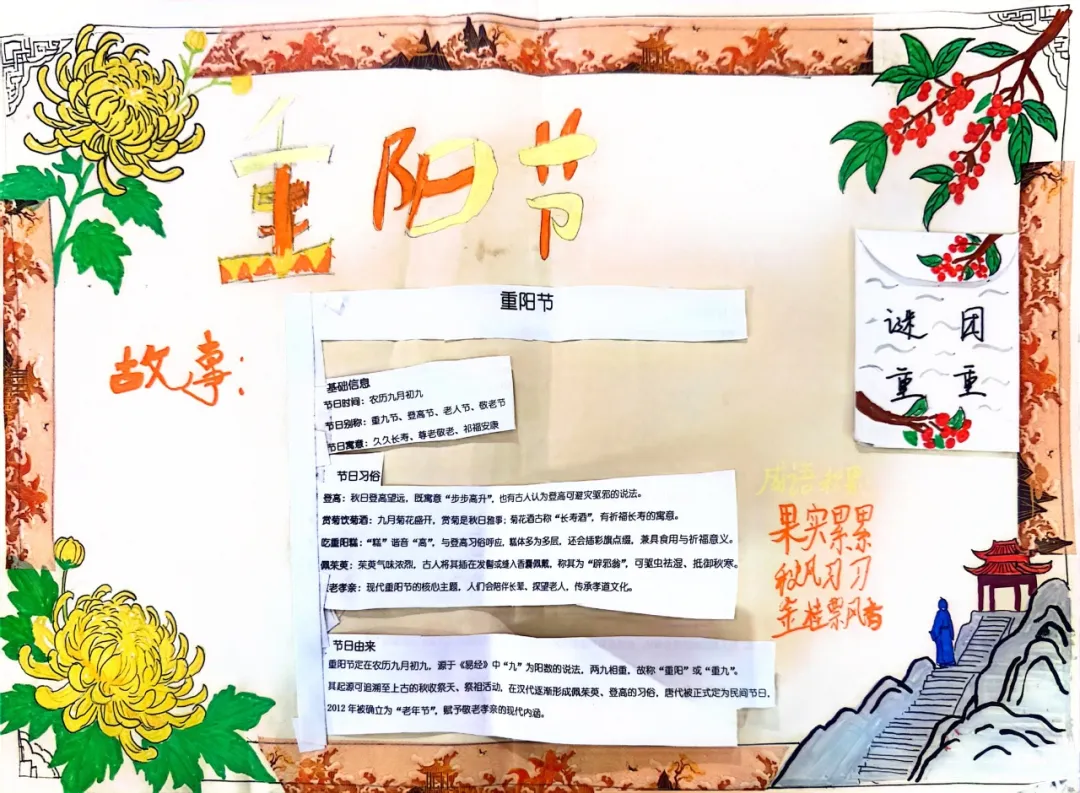 重阳节
故事：
重阳节
基础信息
节日时间：农历九月初九
节日别称：重九节、登高节、老人节、敬老节
节日寓意：久久长寿、尊老敬老、祈福安康
节日习俗
登高：秋日登高望远，既寓意“步步高升”，也有古人认为登高可避灾驱邪的说法。
赏菊饮菊酒：九月菊花盛开，赏菊是秋日雅事；菊花酒古称“长寿酒”，有祈福长寿的寓意。
吃重阳糕：“糕”谐音“高”，与登高习俗呼应，糕体多为多层，还会插彩旗点缀，兼具食用与祈福意义。
佩茱萸：茱萸气味浓烈，古人将其插在发髻或缝入香囊佩戴，称其为“辟邪翁”，可驱虫祛湿、抵御秋寒。
老孝亲：现代重阳节的核心主题，人们会陪伴长辈、探望老人，传承孝道文化。
节日由来
重阳节定在农历九月初九，源于《易经》中“九”为阳数的说法，两九相重，故称“重阳”或“重九”。
其起源可追溯至上古的秋收祭天、祭祖活动，在汉代逐渐形成佩茱萸、登高的习俗，唐代被正式定为民间节日，
2012年被确立为“老年节”，赋予敬老孝亲的现代内涵。
谜团
重重
成语
果实累累
秋风习习
金桂飘香